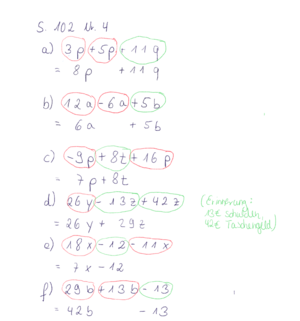 S. 102 Nr. 4
a) 3p + 5p + 11q
= 8p + 11q
b) 12a - 6a + 5b
= 6a + 5b
c) -9p + 8t + 16p
= 7p + 8t
d) 26y - 13z + 42z
(Erinnerung:
13€ Schulden,
42€ Taschengeld)
= 26y + 29z
e) 18x - 12 - 11x
= 7x - 12
f) 29b + 13b - 13
= 42b - 13